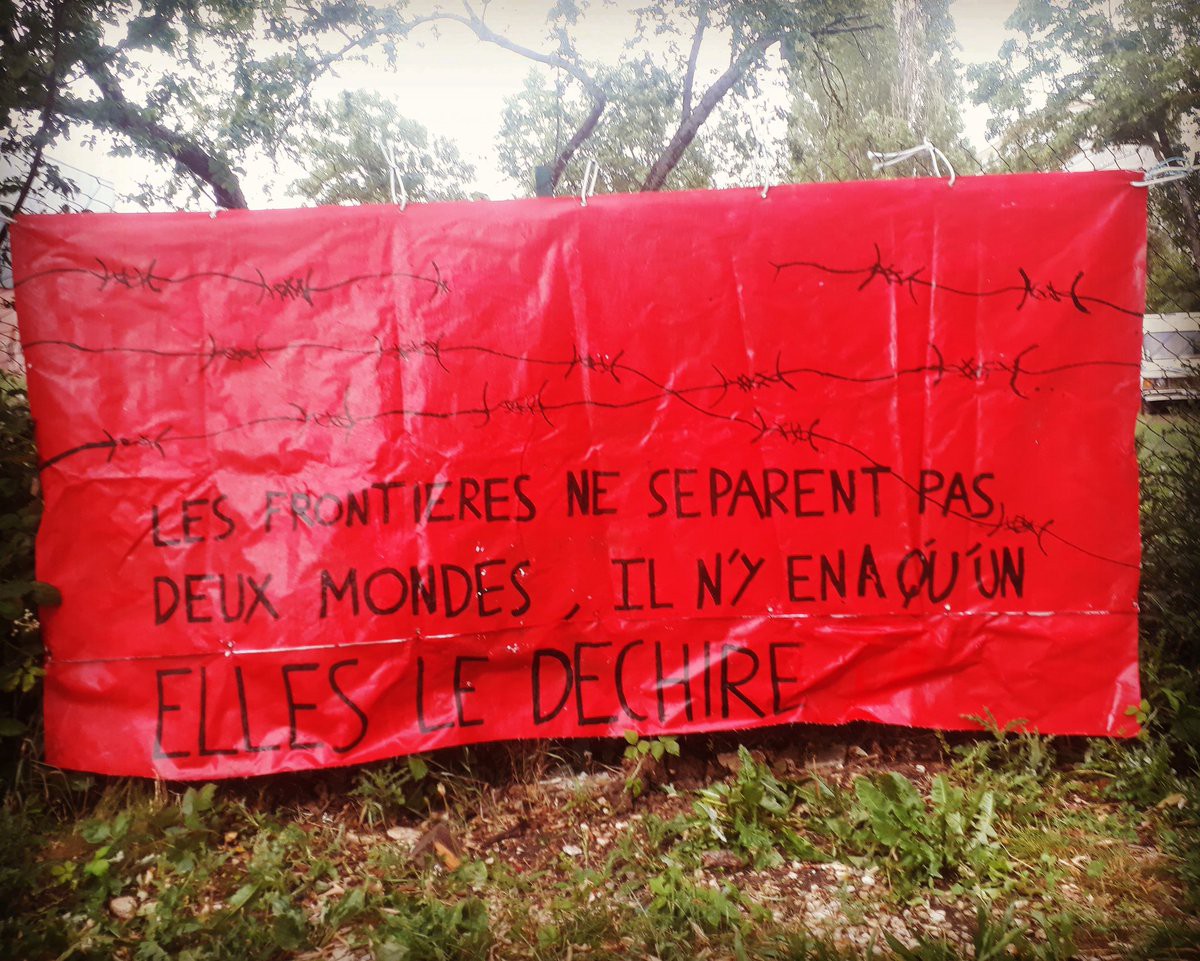 LES FRONTIERES NE SEPARENT PAS
DEUX MONDES, IL N'Y EN A QU'UN
ELLES LE DECHIRE